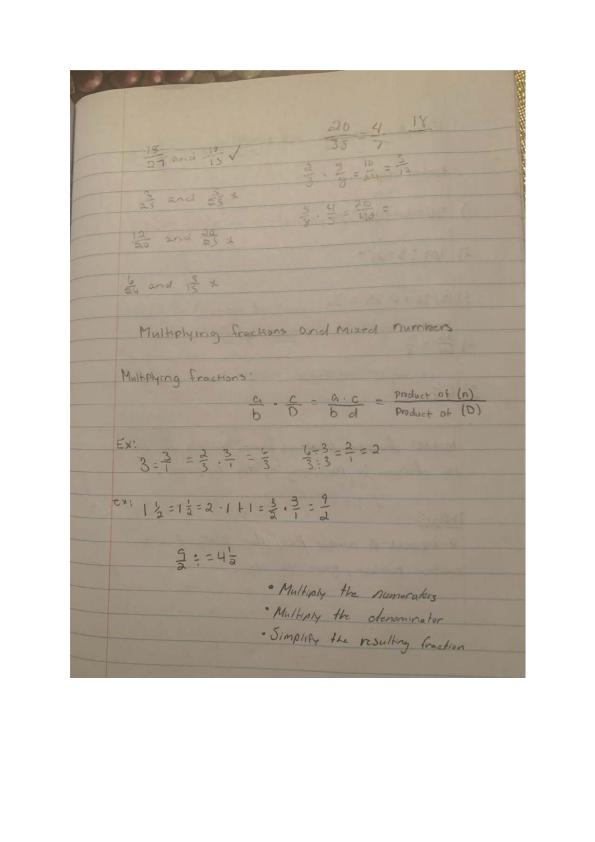 20/35 = 4/7 18
18/27 and 10/15 ✓
2/3 · 5/8 = 10/24 = 5/12
3/25 and 3/25 x
5/8 · 4/5 = 20/40 =
12/20 and 20/25 x
6/54 and 8/15 x
Multiplying fractions and mixed numbers
Multiplying fractions:
a/b · c/D = a · c / b d = product of (n) / Product of (D)
Ex:
3 = 3/1 = 2/3 · 3/1 = 6/3 6÷3/3÷3 = 2/1 = 2
ex: 1 1/2 = 1 1/2 = 2 · 1 + 1 = 3/2 · 3/1 = 9/2
9/2 ÷ = 4 1/2
• Multiply the numerators
• Multiply the denominator
• Simplify the resulting fraction